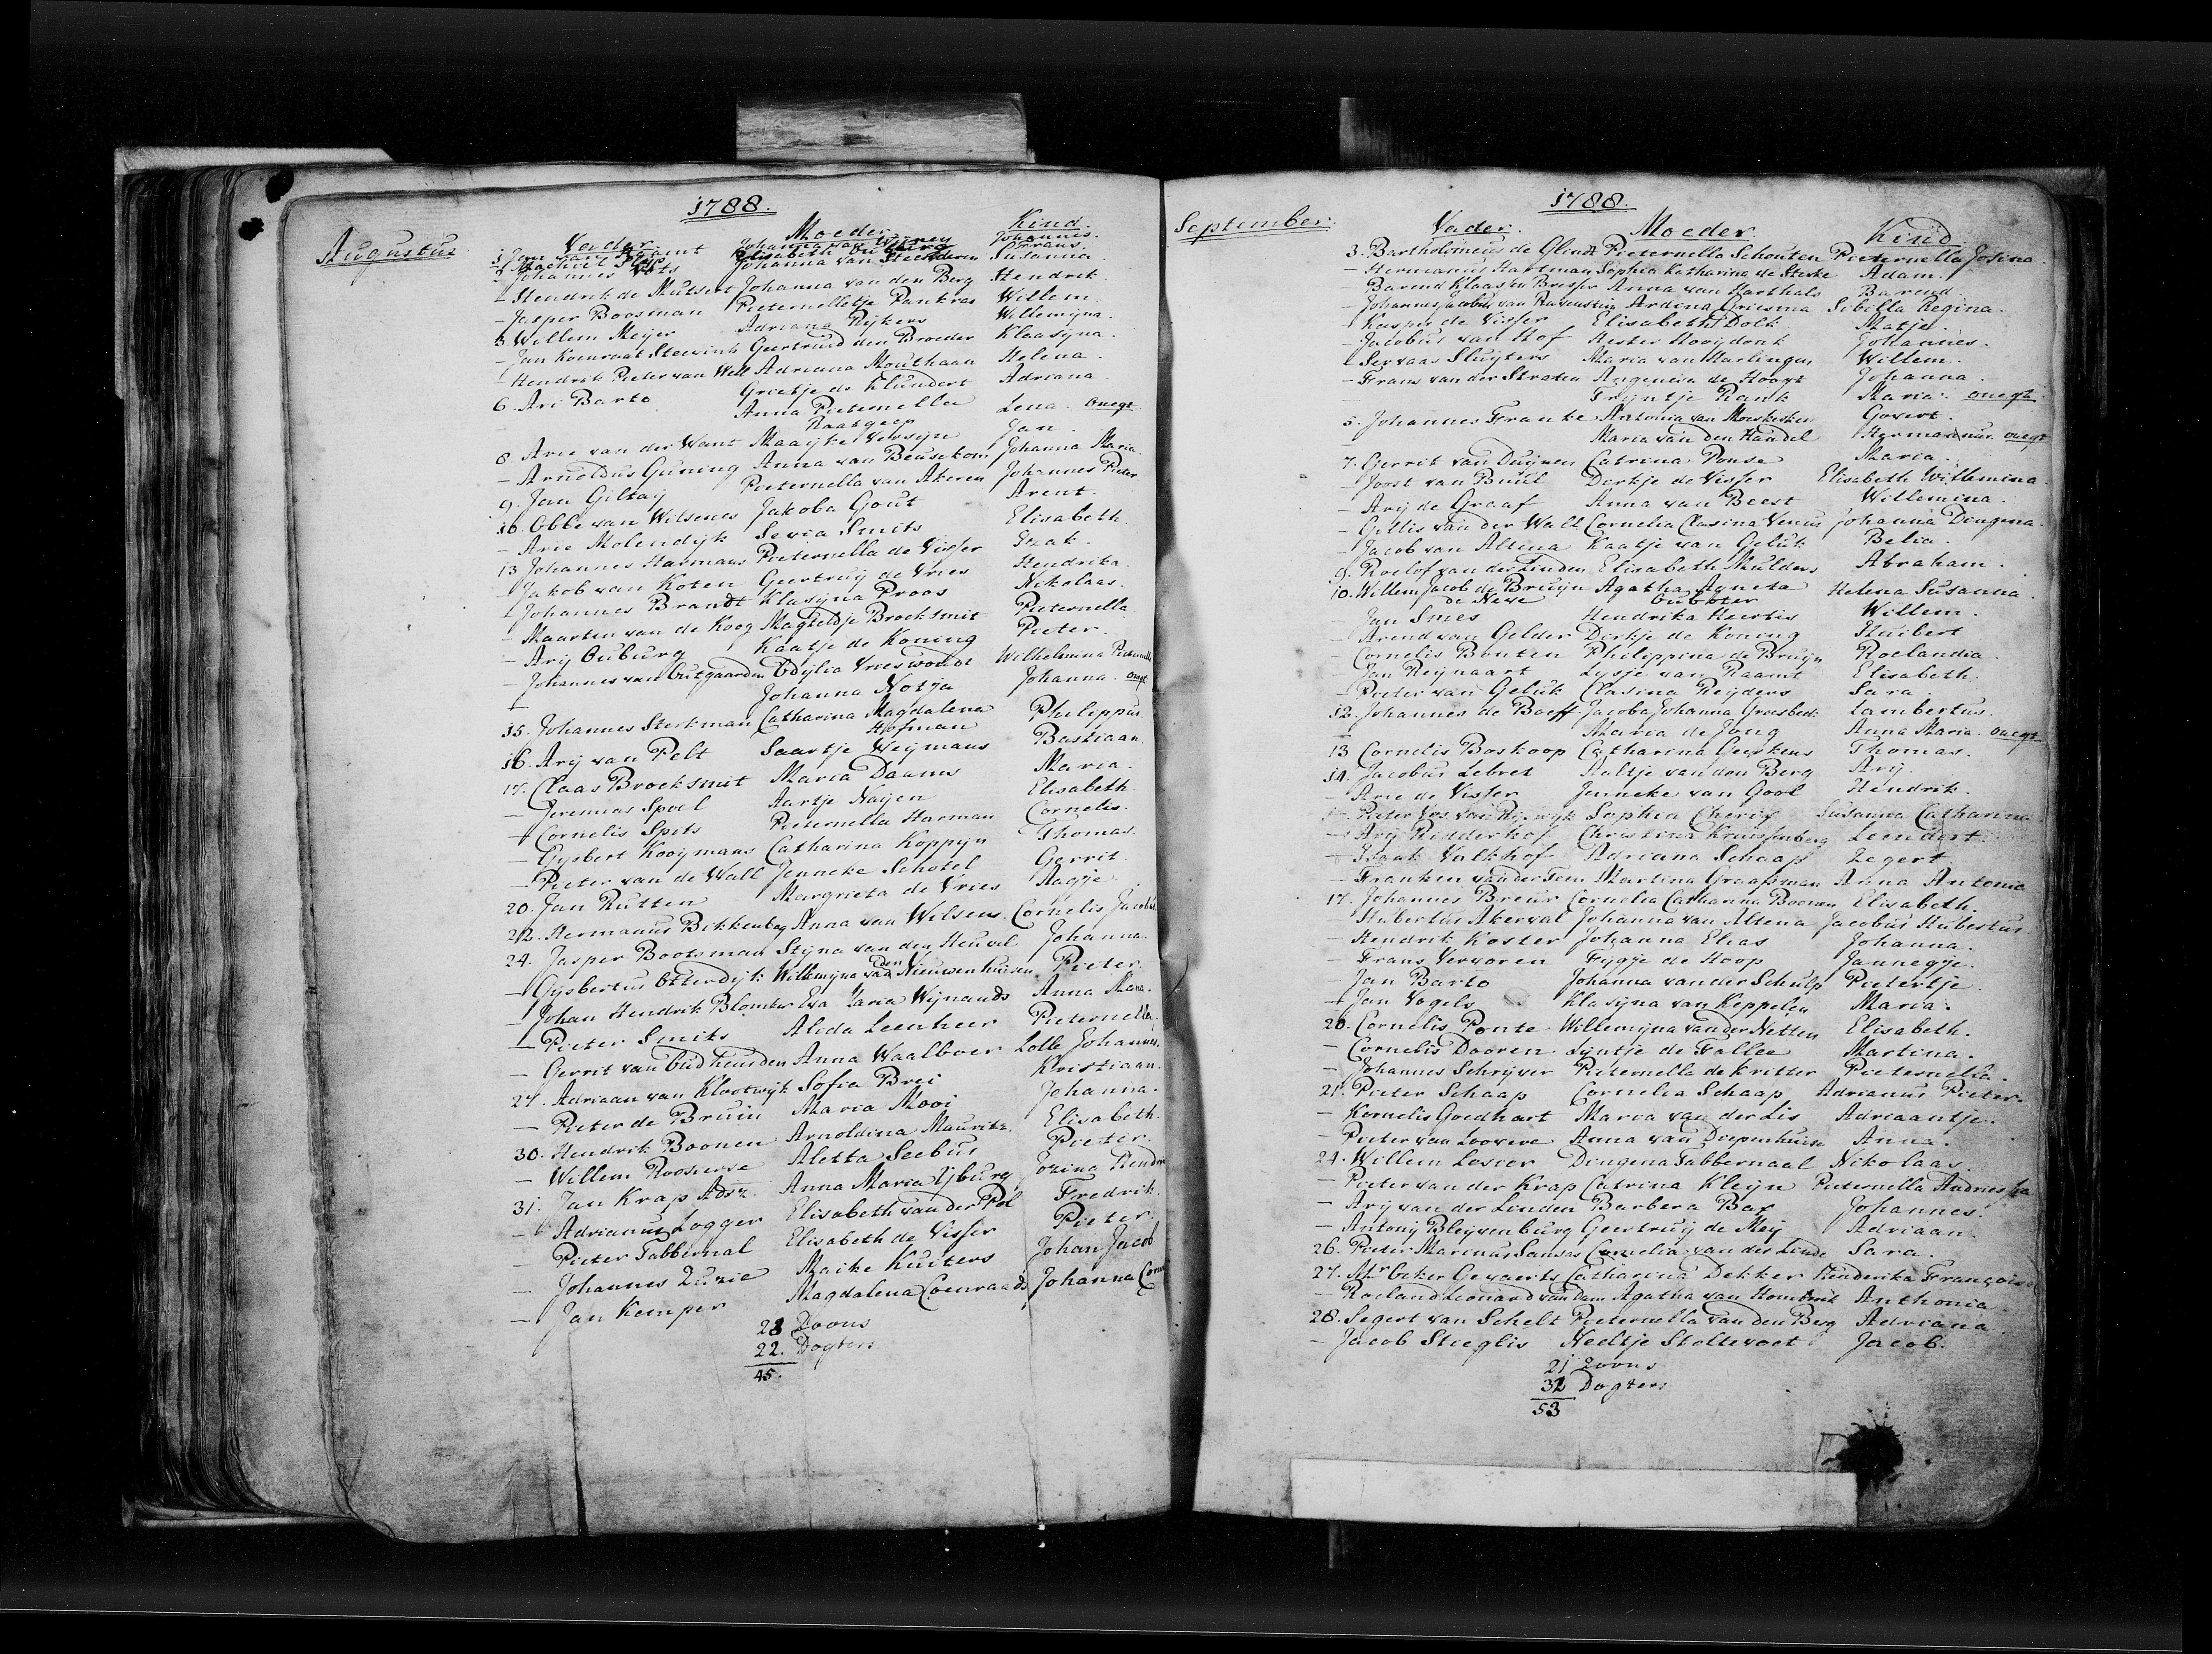 1788.
Augustus
Vader Moeder Kind
1 Jan van Johanna van Wijney Johannes.
- Machiel Elisabeth Ouburg Frans.
2 Johannes Vets Johanna van Steenderen Susanna
- Hendrik de Mutsert Johanna van den Berg Hendrik
- Jasper Boosman Pieternelletje Pankras Willem
3 Willem Meijer Adriana Rijkers Willemijna.
- Jan Koenraat Steevink Geertruid den Broeder Klaasijna
- Hendrik Pieter van Well Adriana Mouthaan Helena
6. Ari Barto Grietje de Klundert Adriana
- Anna Pieternella Lena. onegt
Raatgeep
8. Arie van der Want Maaijke Versijn Jan
- Arnoldus Guining Anna van Beusekom Johanna Maria.
9. Jan Giltay Pieternella van Akeren Johannes Pieter
10. Obbe van Wilsenes Jakoba Gout Arent.
- Arie Molendijk Sevia Smits Elisabeth
13 Johannes Harmans Pieternella de Visser Izak.
- Jakob van Koten Geertruij de Vries Hendrika
- Johannes Brandt Klasijna Proos Nikolaas.
- Maarten van de Koog Magteldje Broeksmit Pieternella
- Arij Ouburg Kaatje de Koning Pieter.
- Johannes van Outgaarden Odijlia Vrieswoudt Wilhelmina
- Johanna Notja Johanna. onegt
15. Johannes Sterkman Catharina Magdalena Philippus
Hofman
16. Arij van Pelt Saartje Weijmans Bastiaan
17. Claas Broeksmit Maria Daams Maria.
- Jeremias Spoel Aartje Naijen Elisabeth
- Cornelis Spits Pieternella Harman Cornelis.
- Gijsbert Kooijmans Catharina Koppijn Thomas.
- Pieter van de Wall Jenneke Schotel Gerrit
20. Jan Rutten Margrieta de Vries Aagje
22. Hermanus Bikkenbag Anna van Wilsens. Cornelis Jacobus
24. Jasper Bootsman Stijna van den Heuvel Johanna.
- Gijsbertus Otterdijk Willemijna van den Nieuwenhuisen Pieter
- Johan Hendrik Blomker Eva Maria Wijnands Anna Maria.
- Pieter Smits Alida Leenheer Pieternella
- Gerrit van Oudheusden Anna Waalboer Lolle Johannes.
27. Adriaan van Klootwijk Sofia Brei Kristiaan.
- Pieter de Bruin Maria Mooi Johanna.
30. Hendrik Boonen Arnoldina Mauritz. Elisabeth.
- Willem Rooseere Aletta Seebus Pieter.
31. Jan Krap Adsz. Anna Maria Ijburg Jozina
- Adrianus Logger Elisabeth van der Pol Fredrik.
- Pieter Tabbernal Elisabeth de Visser Pieter
- Johannes Quzie Maike Kuiters Johan Jacob
- Jan Kemper Magdalena Coenraads Johanna
23 Zoons
22. Dogters
45.
1788.
September.
Vader. Moeder Kind
3. Bartholomeus de Glindt Pieternella Schouten Pieternella Josina.
- Hermanus Hartman Sophia Katharina de Sterke Adam.
- Barend Klaassen Brisser Anna van Harthals Barend.
- Johannes Jacobus van Ravenstein Ardina Griesma Sibilla Regina.
- Kasper de Visser Elisabeth Dolk Matje.
- Jacobus van Hof Hester Hooijdonk Johannes.
- Servaas Sluijters Maria van Harlingen Willem.
- Frans van der Straten Angeneta de Hoogt Johanna.
- Trijntje Rank Maria. onegt
5. Johannes Franke Antonia van Moeskesken Govert.
- Maria van den Handel Hermannus onegt
7. Gerrit van Duijnen Catrina Ponse Maria.
- Joost van Buul Derkje de Visser Elisabeth Willemina.
- Arij de Graaf Anna van Beest Willemina.
- Gillis van der Walt Cornelia Clasina Venus Johanna Dingena.
- Jacob van Altena Kaatje van Geluk Belia.
9. Roelof van der Linden Elisabeth Mulders Abraham.
10. Willem Jacob de Bruijn Agatha Agneta Helena Susanna.
de Neve Ouboter
- Jan Smes Hendrika Heertis Willem.
- Arend van Gelder Dirkje de Koning Huibert
- Cornelis Bonten Philippina de Bruijn Roelandia.
- Jan Reijnaart Lijsje van Raamt Elisabeth.
- Pieter van Geluk Clasina Reijders Sara
12. Johannes de Baeff Jacoba Johanna Groesbeek Lambertus.
- Maria de Jong Anna Maria. onegt
13 Cornelis Boskoop Catharina Geeskens Thomas.
14. Jacobus Lebret Aaltje van den Berg Arij.
- Arie de Visser Jenneke van Gool Hendrik.
- Pieter Vos van Rijswijk Sophia Cherix Susanna Catharina.
- Arij Ridderhof Christina Kruissenberg Leendert.
- Isaak Valkhof Adriana Schaap Zegert.
- Franken van der Tem Martina Graafsman Anna Antonia
17. Johannes Breur Cornelia Catharina Boonen Elisabeth.
- Hubertus Akerval Johanna van Altena Jacobus Hubertus.
- Hendrik Koster Johanna Elias Johanna.
- Frans Vervoren Fijgje de Hoop Jannegje.
- Jan Barto Johanna van der Schulp Pietertje.
- Jan Vogels Klasijna van Keppelen Maria.
20. Cornelis Ponte Willemijna van der Netten Elisabeth.
- Cornelis Dooren Lijntje de Fallee Martina.
- Johannes Schrijver Pieternella de Kritter Pieternella.
21. Pieter Schaap Cornelia Schaap Adrianus Pieter.
- Kornelis Goedhart Maria van der Lis Adriaantje.
- Pieter van Loovere Anna van Diepenhuise Anna.
24. Willem Lesier Dingena Tabbernaal Nikolaas.
- Pieter van der Krap Catrina Kleijn Pieternella Andriesja
- Arij van der Linden Barbera Bax Johannes.
- Antonij Bleijvenburg Geertruij de Meij Adriaan.
26. Pieter Marinus Sansas Cornelia van der Linde Sara.
27. Mr. Ocker Gevaerts Catharina Dekker Henderika
- Roeland Leonard van Dam Agatha van Homdreit Anthonia
28. Segert van Schelt Pieternella van den Berg Adriana
- Jacob Stieglis Neeltje Stoltevoet Jacob.
21 Zoons
32 Dogters
53